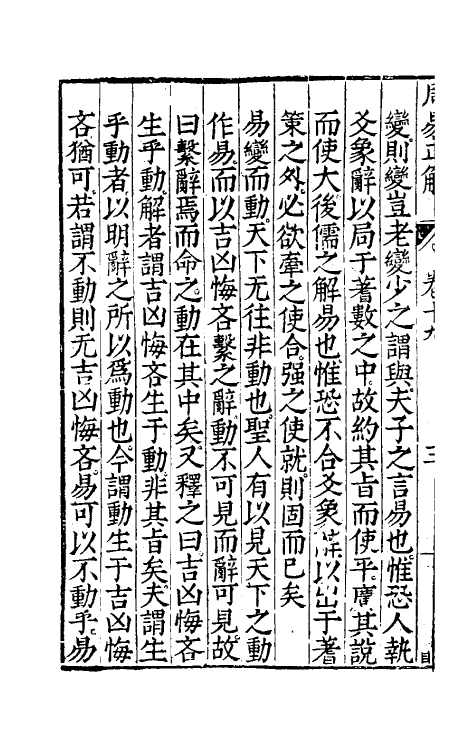 周易正解 卷十九 三
變則變豈老變少之謂與夫子之言易也惟恐人執
爻象辭以局于蓍數之中故約其旨而使平廣其說
而使大後儒之解易也惟恐不合爻象 以出于蓍
策之外必欲牽之使合强之使就則固而已矣
易變而動天下无往非動也聖人有以見天下之動
作易而以吉凶悔吝繫之辭動不可見而辭可見故
曰繫辭焉而命之動在其中矣又釋之曰吉凶悔吝
生乎動解者謂吉凶悔吝生于動非其旨矣夫謂生
乎動者以明辭之所以爲動也今謂動生于吉凶悔
吝猶可若謂不動則无吉凶悔吝易可以不動乎易